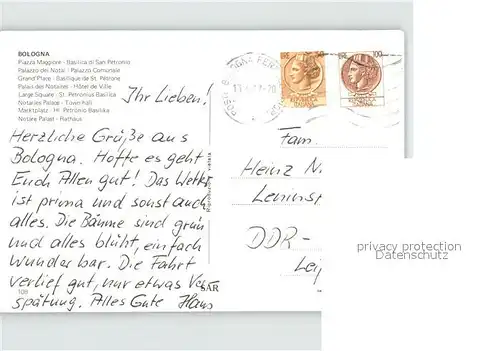 BOLOGNA
Piazza Maggiore - Basilica di San Petronio
Palazzo dei Notai - Palazzo Comunale
Grand'Place - Basilique de St. Pétrone
Palais des Notaires - Hôtel de Ville
Large Square - St. Petronius Basilica
Notaries Palace - Town-hall
Marktplatz - Hl. Petronio Basilika
Notäre Palast - Rathaus
Ihr Lieben!
Herzliche Grüße aus
Bologna. Hoffe es geht
Euch Allen gut! Das Wetter
ist prima und sonst auch
alles. Die Bäume sind grün
und alles blüht, einfach
wunderbar. Die Fahrt
verlief gut, nur etwas Ver-
spätung. Alles Gute Hans
109
SAR
100
Fam.
Heinz N
Leninst
DDR-
Leip
privacy protection
Datenschutz